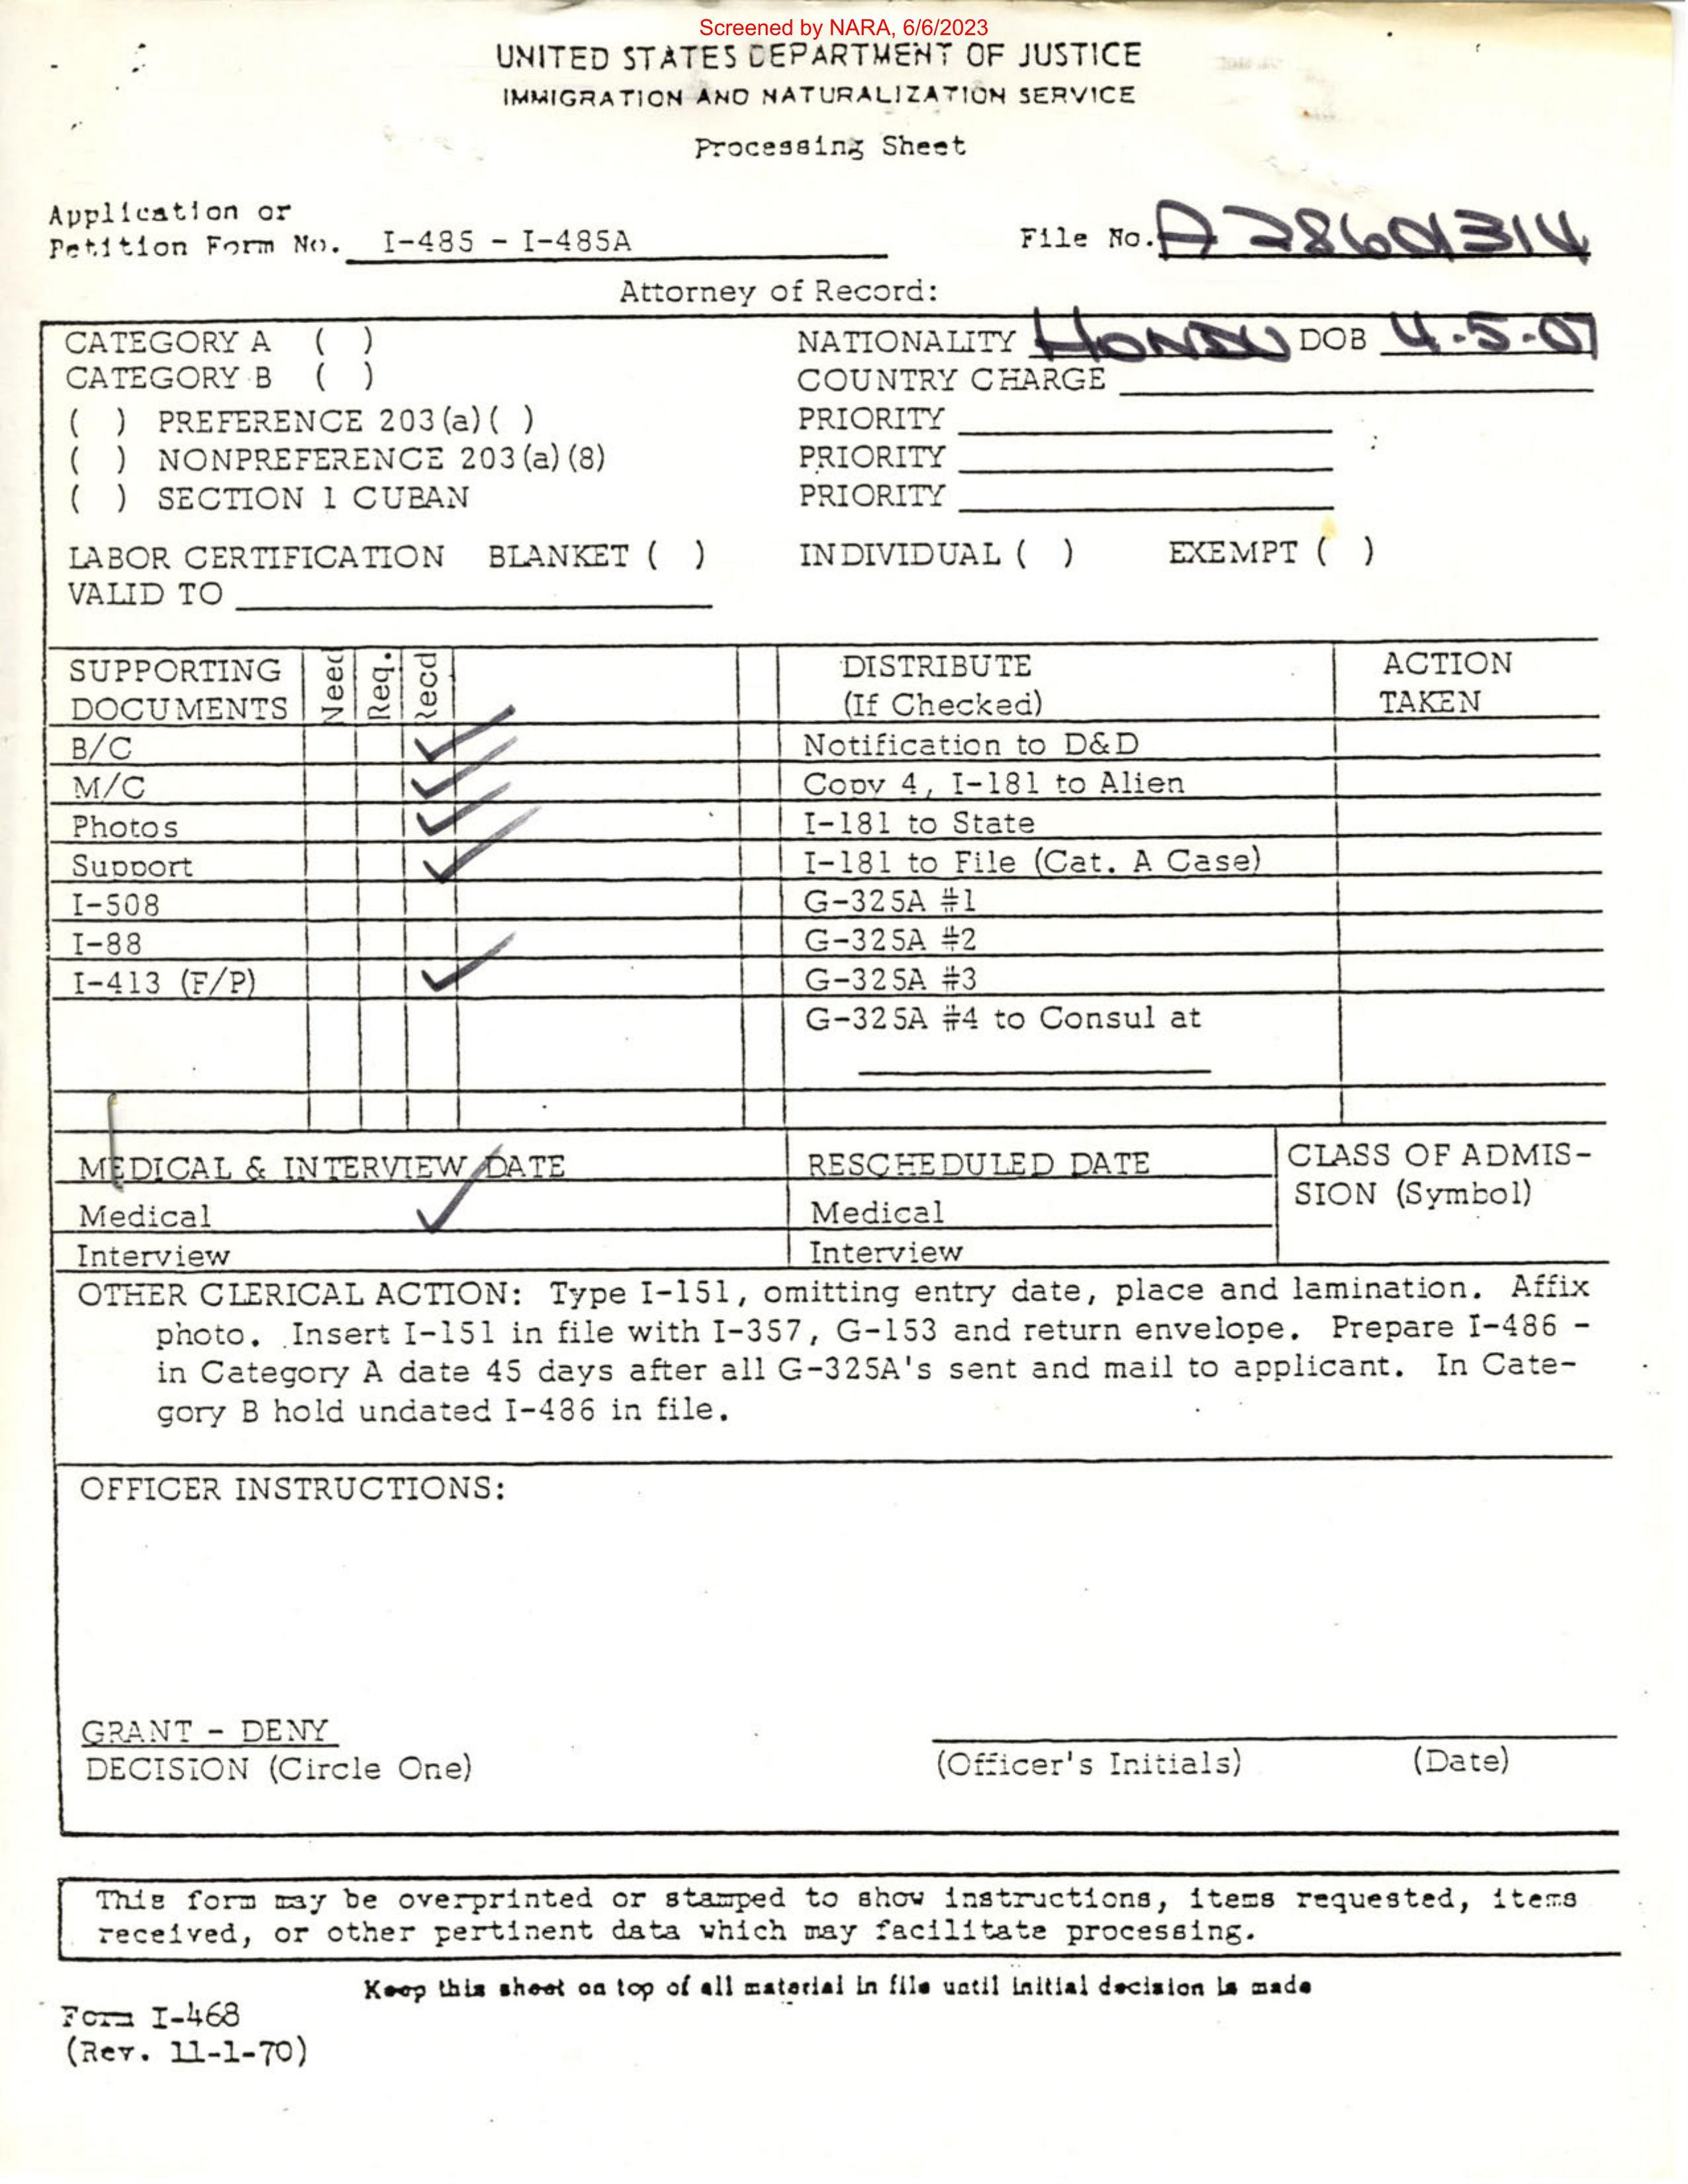 Screened by NARA, 6/6/2023
UNITED STATES DEPARTMENT OF JUSTICE
IMMIGRATION AND NATURALIZATION SERVICE
Processing Sheet
Application or
Petition Form No. I-485 - I-485A
File No. A 28601314
Attorney of Record:
CATEGORY A ( ) NATIONALITY HONDU DOB 4-5-07
CATEGORY B ( ) COUNTRY CHARGE
( ) PREFERENCE 203(a)( ) PRIORITY
( ) NONPREFERENCE 203(a)(8) PRIORITY
( ) SECTION 1 CUBAN PRIORITY
LABOR CERTIFICATION BLANKET ( ) INDIVIDUAL ( ) EXEMPT ( )
VALID TO
SUPPORTING DOCUMENTS Need Req. Recd DISTRIBUTE (If Checked) ACTION TAKEN
B/C ✓ Notification to D&D
M/C ✓ Copy 4, I-181 to Alien
Photos ✓ I-181 to State
Support ✓ I-181 to File (Cat. A Case)
I-508 G-325A #1
I-88 G-325A #2
I-413 (F/P) ✓ G-325A #3
G-325A #4 to Consul at
MEDICAL & INTERVIEW DATE RESCHEDULED DATE CLASS OF ADMIS-
SION (Symbol)
Medical ✓ Medical
Interview Interview
OTHER CLERICAL ACTION: Type I-151, omitting entry date, place and lamination. Affix
photo. Insert I-151 in file with I-357, G-153 and return envelope. Prepare I-486 -
in Category A date 45 days after all G-325A's sent and mail to applicant. In Cate-
gory B hold undated I-486 in file.
OFFICER INSTRUCTIONS:
GRANT - DENY
DECISION (Circle One) (Officer's Initials) (Date)
This form may be overprinted or stamped to show instructions, items requested, items
received, or other pertinent data which may facilitate processing.
Keep this sheet on top of all material in file until initial decision is made
Form I-468
(Rev. 11-1-70)